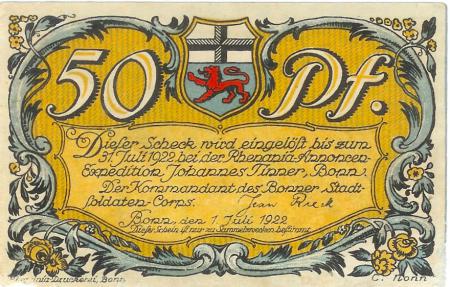 50 Pf.
Dieser Scheck wird eingelöst bis zum
31. Juli 1922 bei der Rhenania-Annoncen-
Expedition Johannes Tinner, Bonn.
Der Kommandant des Bonner Stadt-
soldaten-Corps.
Bonn, den 1. Juli 1922
Dieser Schein ist nur zu Sammelzwecken bestimmt.
Rhenania-Druckerei, Bonn